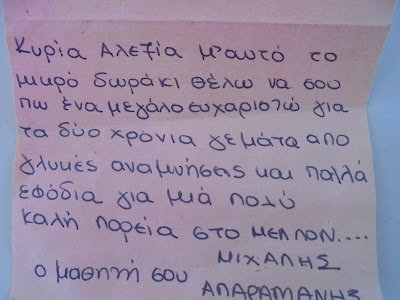 Κυρία Αλεξία μ'αυτό το
μικρό δωράκι θέλω να σου
πω ένα μεγάλο ευχαριστώ για
τα δύο χρόνια γεμάτα απο
γλυκές αναμνήσεις και πολλά
εφόδια για μιά πολύ
καλή πορεία στο μελλον....
ΜΙΧΑΛΗΣ
ο μαθητή σου ΑΠΑΡΑΜΑΝΗΣ